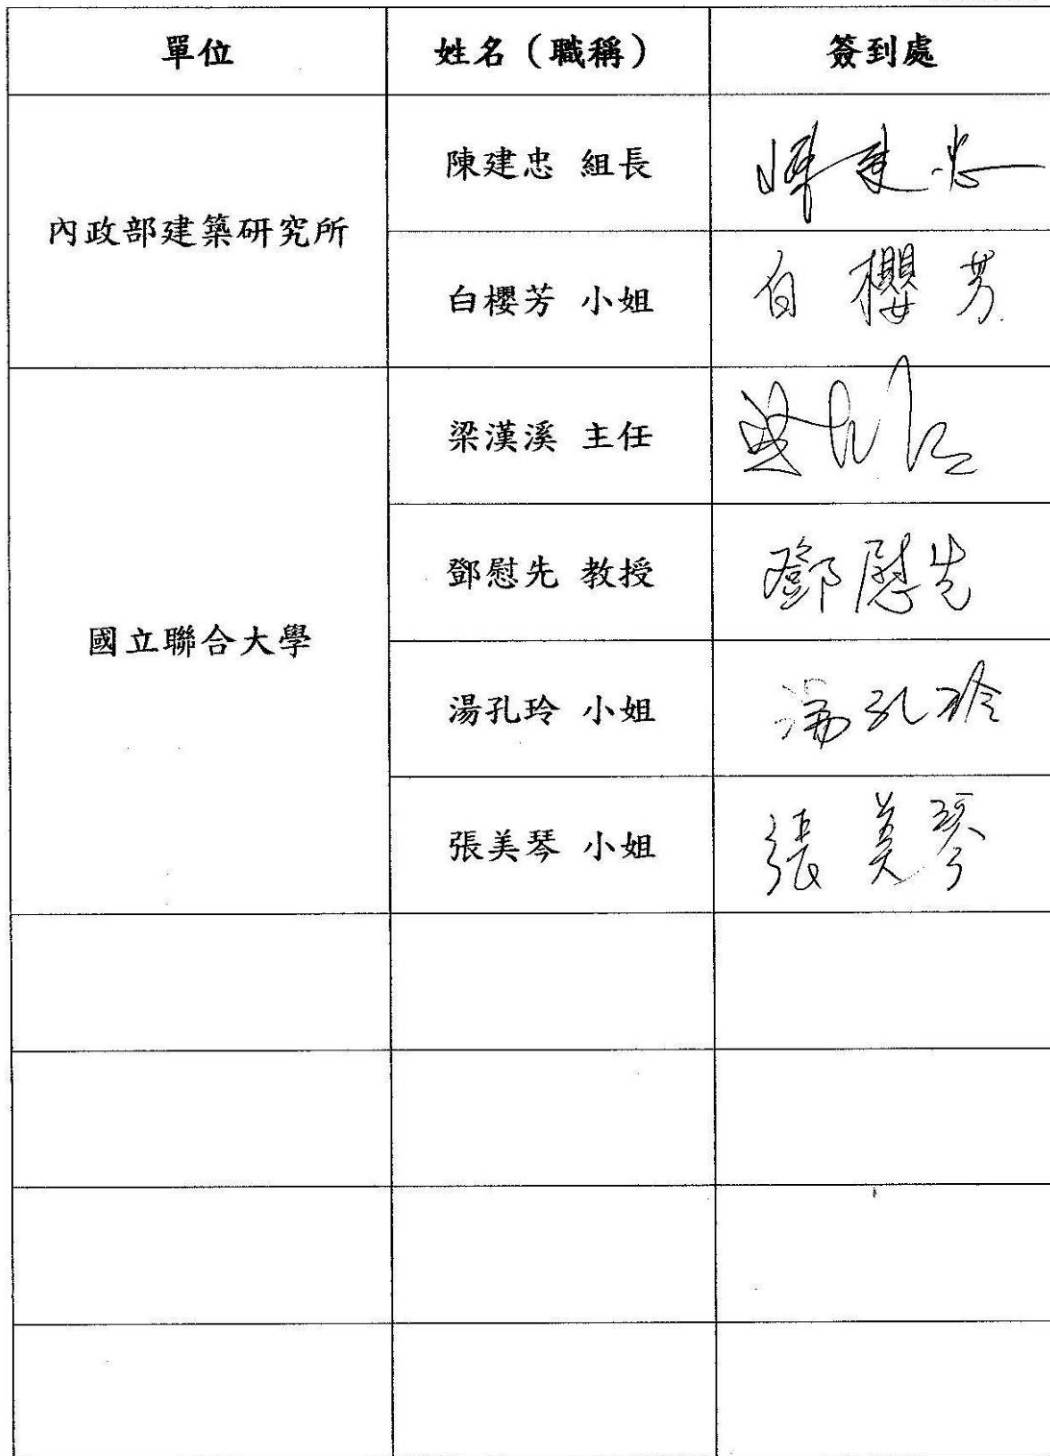 單位 姓名（職稱） 簽到處
內政部建築研究所
陳建忠 組長 陳建忠
白櫻芳 小姐 白櫻芳
國立聯合大學
梁漢溪 主任
鄧慰先 教授 鄧慰先
湯孔玲 小姐 湯孔玲
張美琴 小姐 張美琴